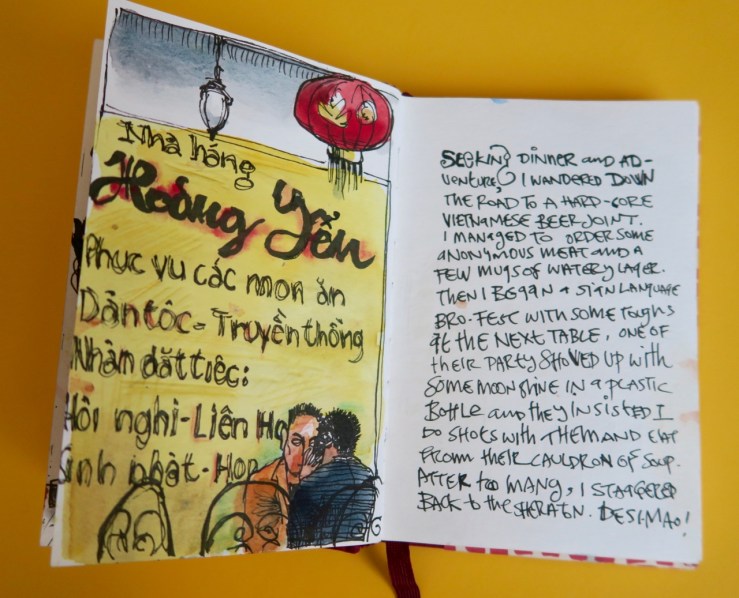 Nhà háng
Hoàng Yến
Phục vụ các mon ăn
Dản tôc - Truyền thông
Nhàn dăt tiệc:
Hôi nghi - Liên Ho
inh nhật - Hon
SEEKING DINNER and AD-
VENTURE, I WANDERED DOWN
THE ROAD TO A HARD-CORE
VIETNAMESE BEER JOINT.
I MANAGED TO ORDER SOME
ANONYMOUS MEAT AND A
FEW MUGS OF WATERY LAGER.
THEN I BEGAN A SIGN LANGUAGE
BRO-FEST WITH SOME TOUGHS
at THE NEXT TABLE, ONE OF
their PARTY SHOVED UP WITH
SOME MOONSHINE IN A PLASTIC
BOTTLE and they INSISTED I
DO SHOTS WITH THEM AND EAT
FROM THEIR CAULDRON OF SOUP.
AFTER too MANG, I STAGGERED
BACK to the SHERATN. DESIMAO!